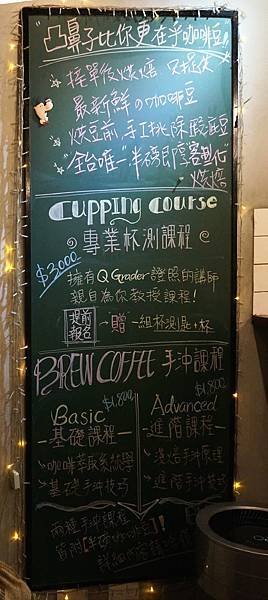 凸鼻子比你更在乎咖啡豆!!
*接單後烘焙 只提供
最新鮮の咖啡豆
*烘豆前,手工挑除瑕疵豆
*"全台唯一"半磅即可客製化
烘焙
Cupping Course
專業杯測課程
$3000
擁有Q Grader證照的講師
親自為你教授課程!
提前報名 → "贈" 一組杯測匙+杯
BREW COFFEE 手沖課程
$1,800
$1,800
Basic
-基礎課程-
咖啡萃取系統學
基礎手沖技巧
Advanced
-進階課程-
手沖原理
進階手沖技巧
兩種手沖課程
皆附【半磅咖啡豆】!